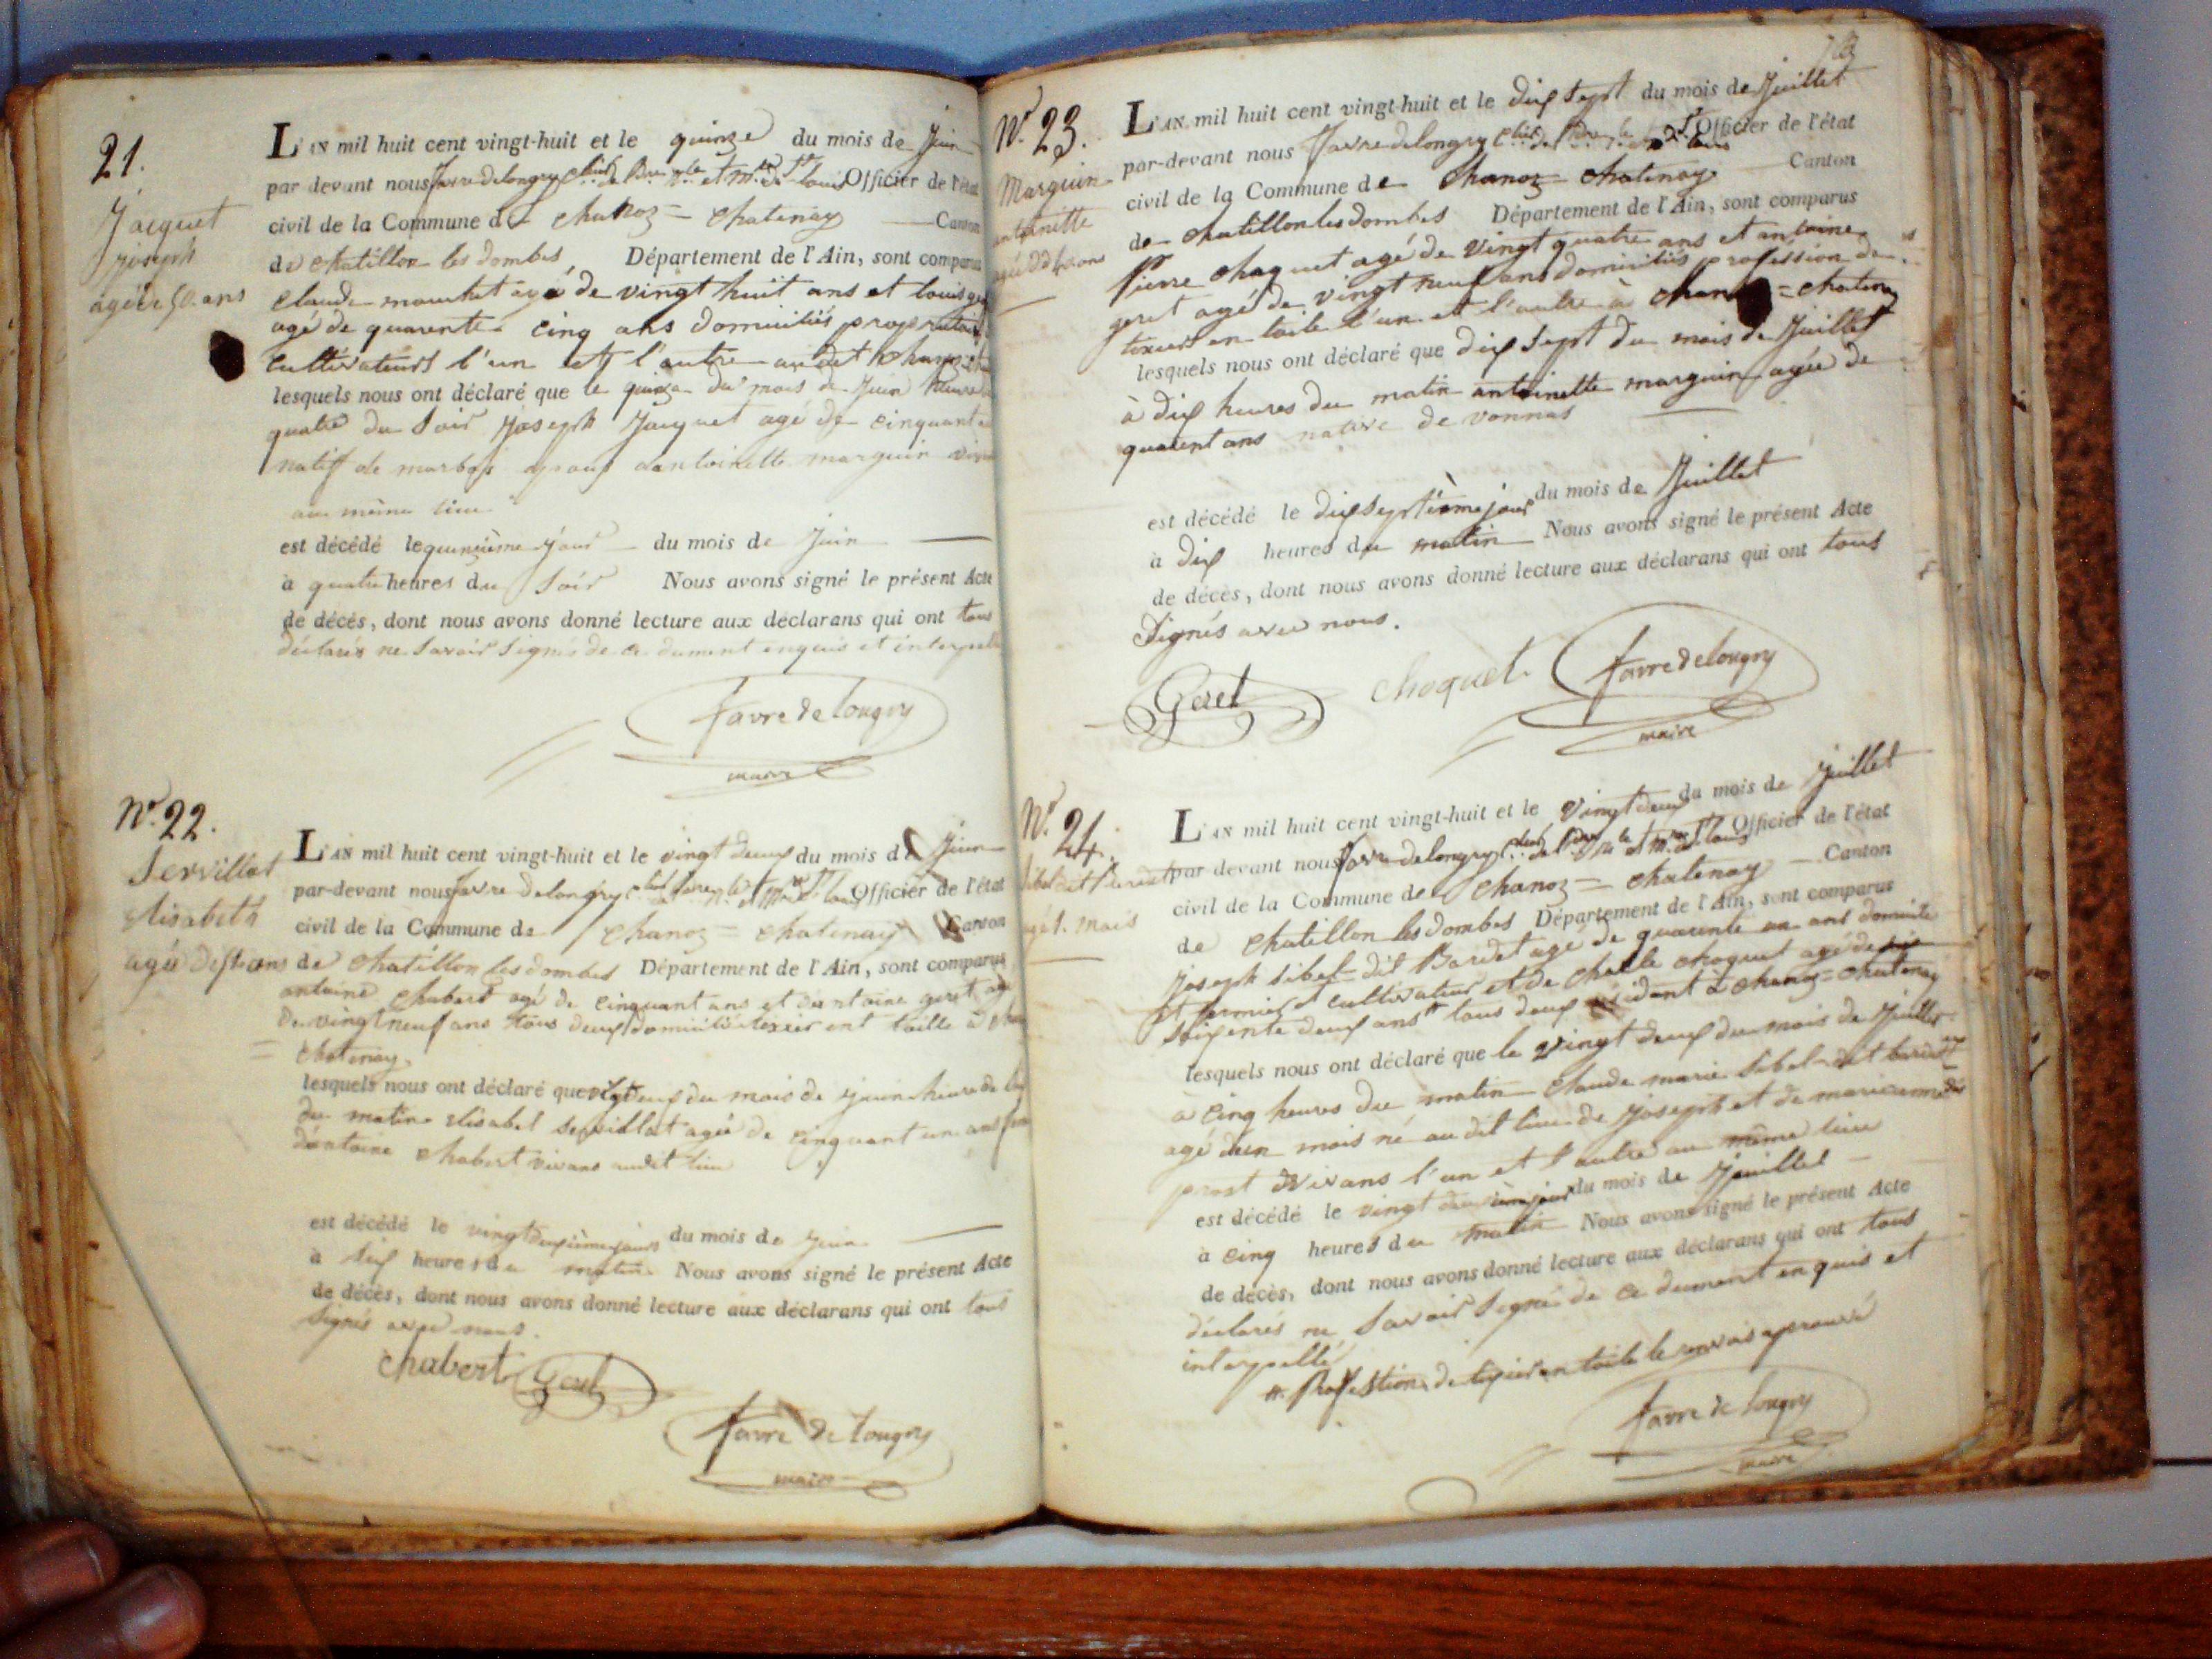 21.
Jacquet
joseph
agé de 50. ans
L'AN mil huit cent vingt-huit et le quinze du mois de Juin
par devant nous favre de longry Officier de l'état
civil de la Commune de chanoz = chatenay Canton
de chatillon les dombes Département de l'Ain, sont comparus
claude mouchet agé de vingt huit ans et louis
agé de quarente cinq ans domiciliés propriétaires
cultivateurs l'un et l'autre audit chanoz
lesquels nous ont déclaré que le quinze du mois de Juin heure de
quatre du soir Joseph Jacquet agé de cinquante
natif de marboz epoux d'antoinette marguin
au même lieu
est décédé le quinzième jour du mois de Juin
à quatre heures du soir Nous avons signé le présent Acte
de décès, dont nous avons donné lecture aux déclarans qui ont tous
déclarés ne savoir signés de ce dument enquis et interpellé
favre de longry
maire
N.° 22.
Servillat
elisabeth
agée de 51 ans
L'AN mil huit cent vingt-huit et le vingt deux du mois de Juin
par-devant nous favre de longry Officier de l'état
civil de la Commune de chanoz = chatenay Canton
de chatillon les dombes Département de l'Ain, sont comparus
antoine chabert agé de cinquant ans et antoine geret agé
de vingt neuf ans tous deux domicilié texier ent toille à
= chatenay.
lesquels nous ont déclaré que vingt deux du mois de juin heure de
du matin elisabet servillat agée de cinquant un ans
d'antoine chabert vivans audit lieu
est décédé le vingt deuxième jours du mois de Juin
à six heures du matin Nous avons signé le présent Acte
de décès, dont nous avons donné lecture aux déclarans qui ont tous
signés avec nous.
chabert Geret
favre de longry
maire
N.° 23.
Marguin
antoinette
agée de 40 ans
L'AN mil huit cent vingt-huit et le dix sept du mois de Juillet
par-devant nous favre de longry Officier de l'état
civil de la Commune de chanoz = chatenay Canton
de chatillon les dombes Département de l'Ain, sont comparus
Pierre choquet agé de vingt quatre ans et antoine
geret agé de vingt neuf ans domiciliés profession de
texier en toile l'un et l'autre à chanoz = chatenay
lesquels nous ont déclaré que dix sept du mois de Juillet
à dix heures du matin antoinette marguin agée de
quarent ans native de vonnas
est décédé le dix septième jour du mois de Juillet
à dix heures du matin Nous avons signé le présent Acte
de décès, dont nous avons donné lecture aux déclarans qui ont tous
signés avec nous.
Geret choquet. favre de longry
maire
N.° 24.
sibel dit
agé 1. mois
L'AN mil huit cent vingt-huit et le vingt deux du mois de Juillet
par devant nous favre de longry Officier de l'état
civil de la Commune de chanoz = chatenay Canton
de chatillon les dombes Département de l'Ain, sont comparus
joseph sibel dit Bardet agé de quarente un ans domicilié
et fermier et cultivateur et de choquet agé de
soixente deux ans # tous deux résidant à chanoz = chatenay
lesquels nous ont déclaré que le vingt deux du mois de Juillet
à cinq heures du matin claude marie sibel dit
agé d'un mois né audit lieu de joseph et de marieanne
prost vivans l'un et l'autre au même lieu
est décédé le vingt deuxième jour du mois de Juillet
à cinq heures du matin Nous avons signé le présent Acte
de décès, dont nous avons donné lecture aux déclarans qui ont tous
déclarés ne savoir signé de ce dument enquis et
interpellé
#. Profession de texier en toile le renvois aprouvé
favre de longry
maire